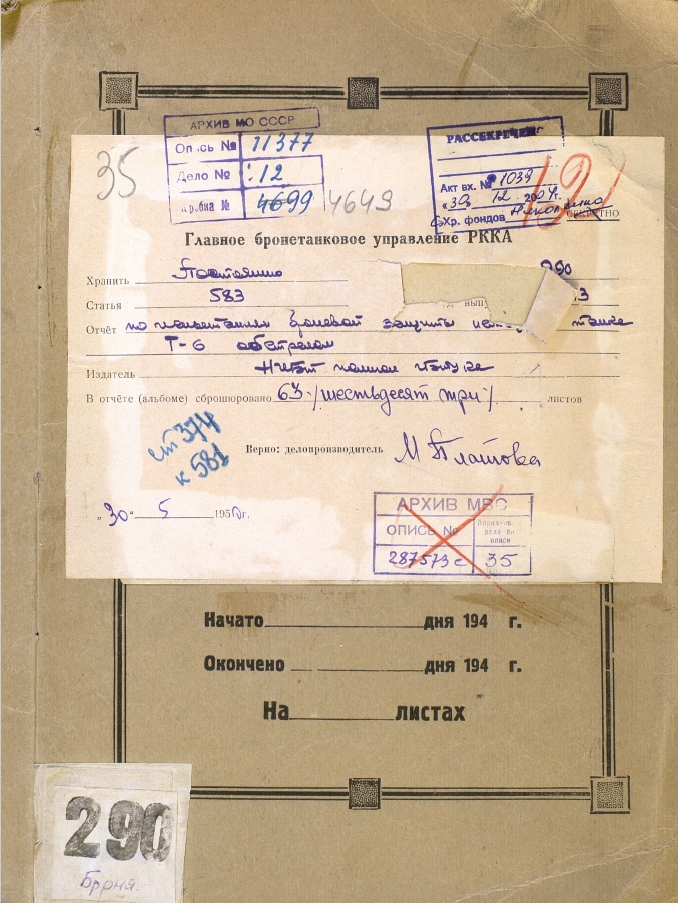 АРХИВ МО СССР
Опись № 11377
Дело № 12
Коробка № 4699
4649
35
РАССЕКРЕЧЕНО
Акт вх. № 1039
"30" 12. 200 г.
Хр. фондов
СЕКРЕТНО
Главное бронетанковое управление РККА
Хранить Постоянно
Статья 583
вып 3
Отчёт по испытаниям броневой защиты танка
Т-6 обстрелом
Издатель НИБТ полигон
В отчёте (альбоме) сброшюровано 63 /шестьдесят три/ листов
ст 374
к 581
Верно: делопроизводитель М Платова
"30" 5 1950 г.
АРХИВ МВС
ОПИСЬ №
287573с 35
Начато дня 194 г.
Окончено дня 194 г.
На листах
290
Броня.